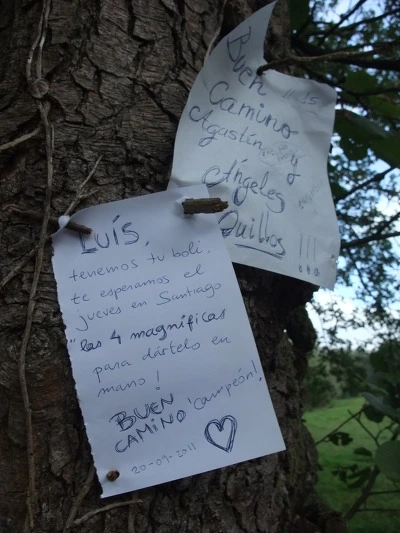 Buen
Camino
Agastín y
Ángeles
Quillos !!!
Luís,
tenemos tu boli,
te esperamos el
jueves en Santiago
"las 4 magníficas
para dártelo en
mano!
BUEN
CAMINO 'campeón'!
20-09-2011